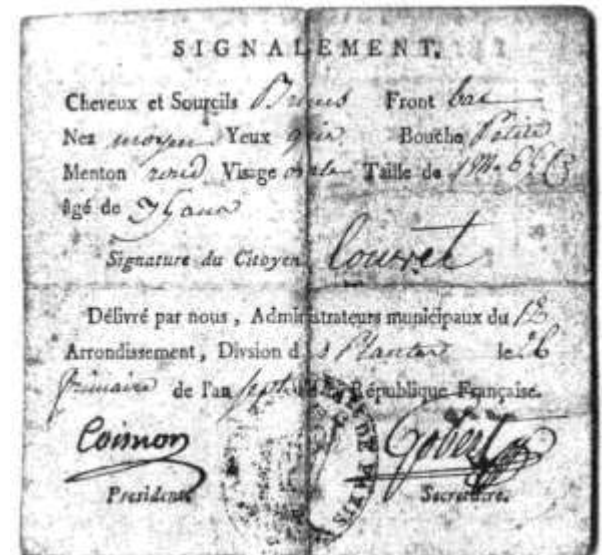 SIGNALEMENT.
Cheveux et Sourcils Bruns Front bas
Nez moyen Yeux gris Bouche Petite
Menton rond Visage ovale Taille de 1 M.
âgé de ans
Signature du Citoyen
Délivré par nous, Administrateurs municipaux du 12
Arrondissement, Divsion des Plantes le 26
frimaire de l'an de la République Française.
Coimon Gobert
Président. Secretaire.
DE PARIS